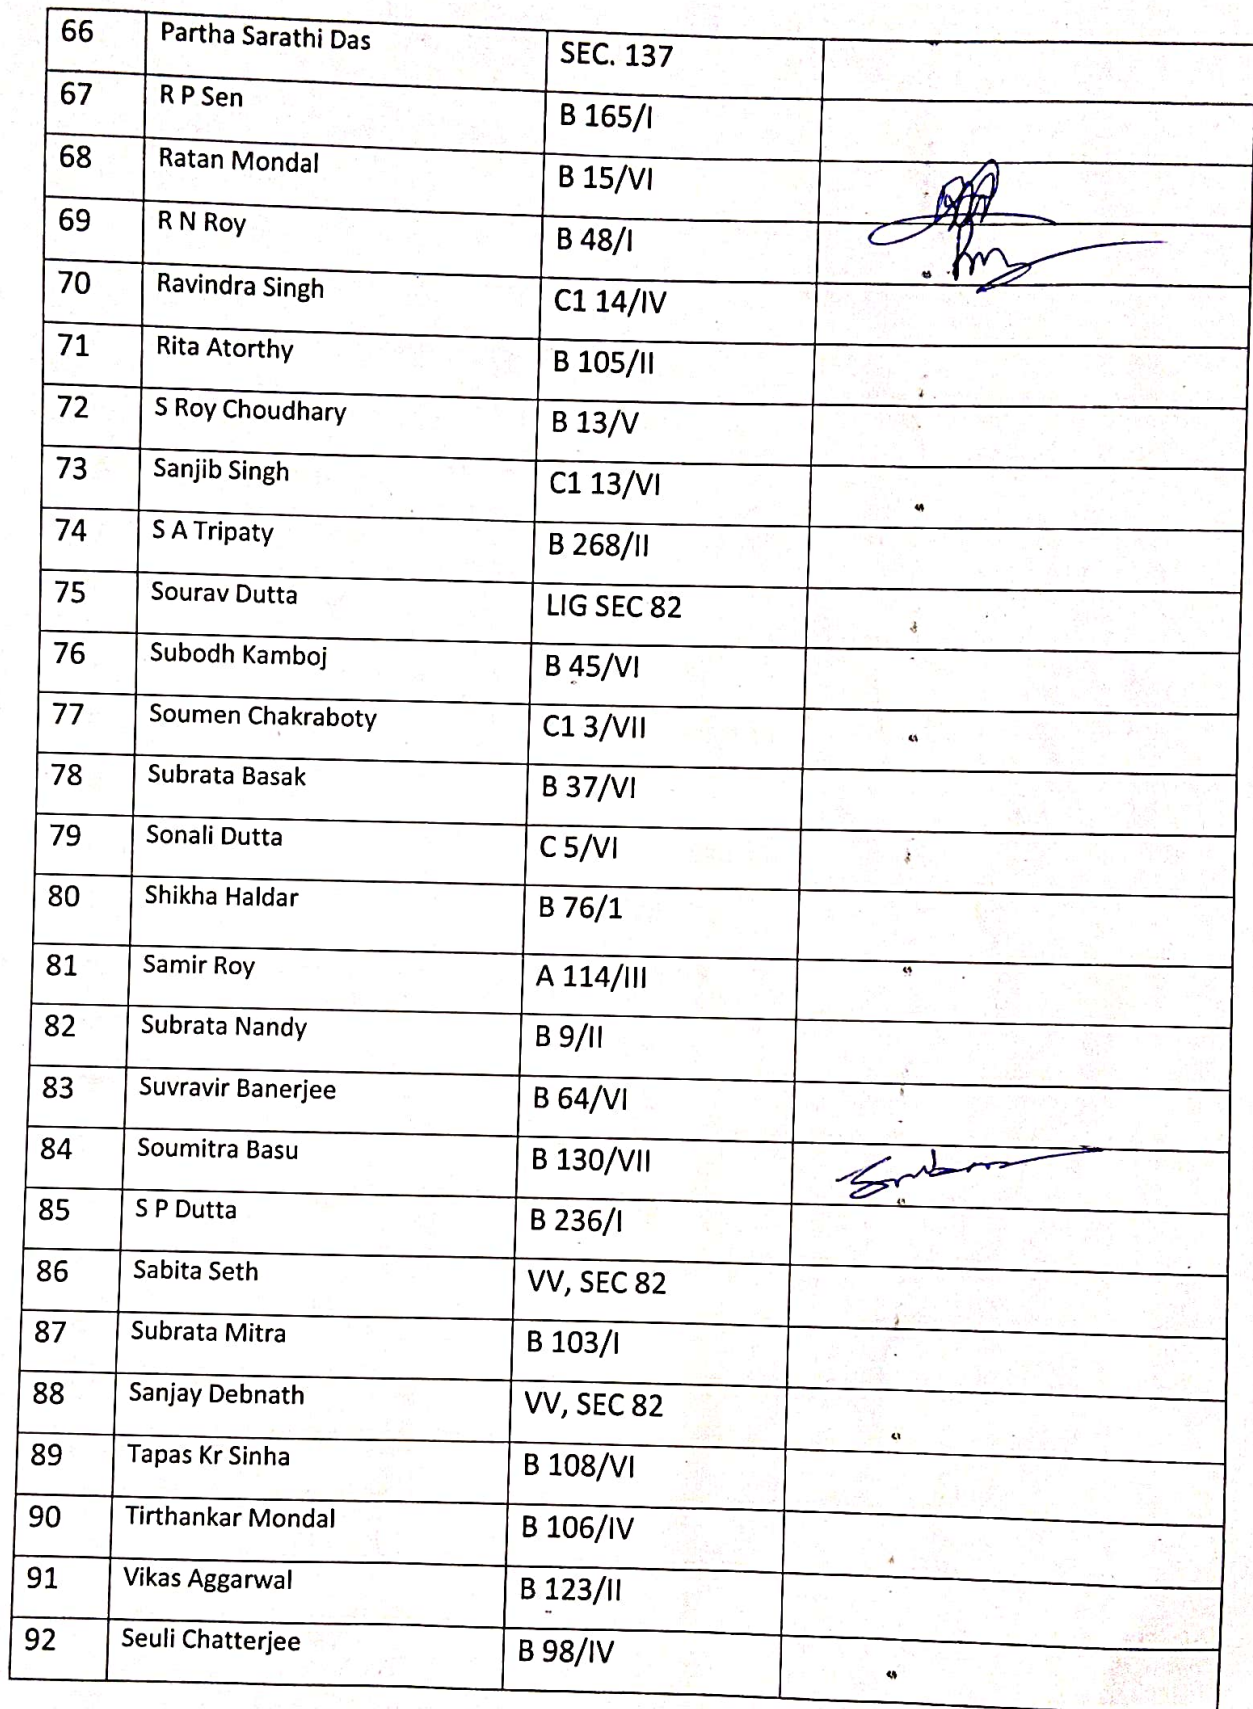 66 Partha Sarathi Das SEC. 137
67 R P Sen B 165/I
68 Ratan Mondal B 15/VI
69 R N Roy B 48/I
70 Ravindra Singh C1 14/IV
71 Rita Atorthy B 105/II
72 S Roy Choudhary B 13/V
73 Sanjib Singh C1 13/VI
74 S A Tripaty B 268/II
75 Sourav Dutta LIG SEC 82
76 Subodh Kamboj B 45/VI
77 Soumen Chakraboty C1 3/VII
78 Subrata Basak B 37/VI
79 Sonali Dutta C 5/VI
80 Shikha Haldar B 76/1
81 Samir Roy A 114/III
82 Subrata Nandy B 9/II
83 Suvravir Banerjee B 64/VI
84 Soumitra Basu B 130/VII
85 S P Dutta B 236/I
86 Sabita Seth VV, SEC 82
87 Subrata Mitra B 103/I
88 Sanjay Debnath VV, SEC 82
89 Tapas Kr Sinha B 108/VI
90 Tirthankar Mondal B 106/IV
91 Vikas Aggarwal B 123/II
92 Seuli Chatterjee B 98/IV